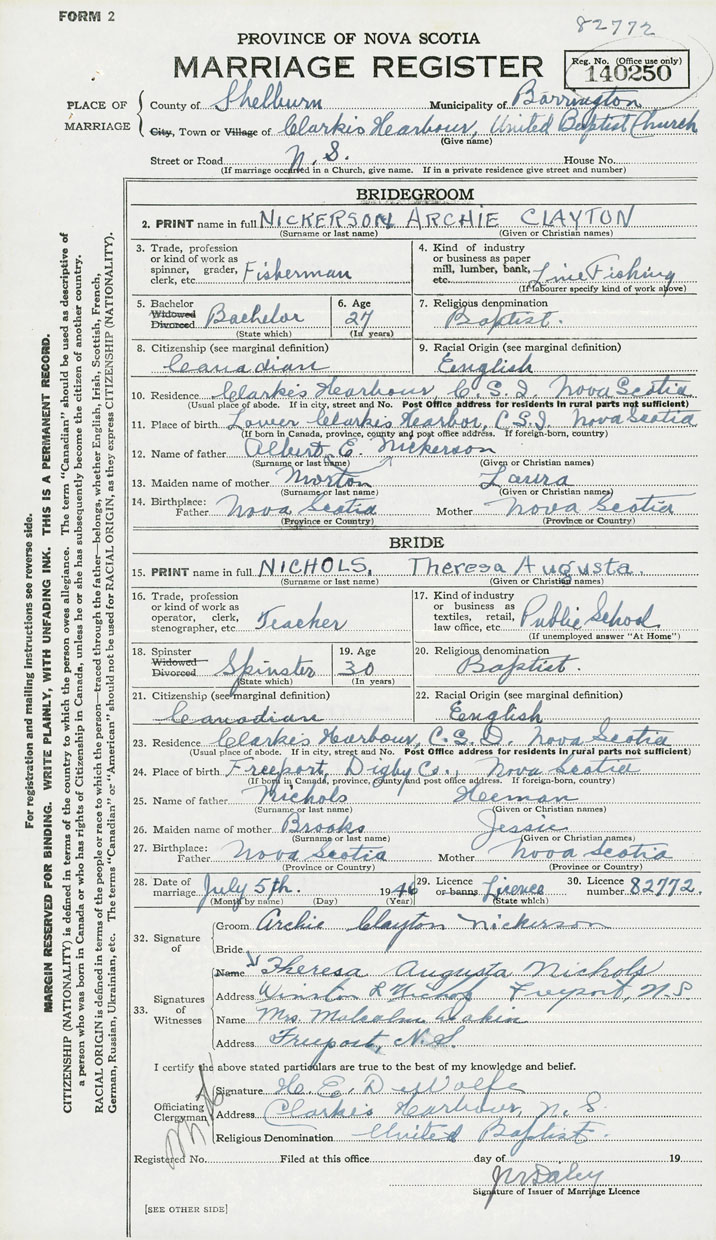 FORM 2
82772
PROVINCE OF NOVA SCOTIA
MARRIAGE REGISTER
Reg. No. (Office use only)
140250
PLACE OF MARRIAGE
County of Shelburn Municipality of Barrington
City, Town or Village of Clarkis Hearbour, United Baptist Church
(Give name)
Street or Road N. S. House No.
(If marriage occurred in a Church, give name. If in a private residence give street and number)
BRIDEGROOM
2. PRINT name in full NICKERSON ARCHIE CLAYTON
(Surname or last name) (Given or Christian names)
3. Trade, profession or kind of work as spinner, grader, clerk, etc. Fisherman
4. Kind of industry or business as paper mill, lumber, bank, etc. Line Fishing
(If labourer specify kind of work above)
5. Bachelor Widowed Divorced Bachelor
(State which)
6. Age 27
(In years)
7. Religious denomination Baptist.
8. Citizenship (see marginal definition) Canadian
9. Racial Origin (see marginal definition) English
10. Residence Clarkis Hearbour C.S.I. Nova Scotia
(Usual place of abode. If in city, street and No. Post Office address for residents in rural parts not sufficient)
11. Place of birth Lower Clarkis Hearbor, C.S.I. Nova Scotia
(If born in Canada, province, county and post office address. If foreign-born, country)
12. Name of father Albert C. Nickerson
(Surname or last name) (Given or Christian names)
13. Maiden name of mother Morton Laura
(Surname or last name) (Given or Christian names)
14. Birthplace: Father Nova Scotia Mother Nova Scotia
(Province or Country) (Province or Country)
BRIDE
15. PRINT name in full NICHOLS, Theresa Augusta.
(Surname or last name) (Given or Christian names)
16. Trade, profession or kind of work as operator, clerk, stenographer, etc. Teacher
17. Kind of industry or business as textiles, retail, law office, etc. Public School
(If unemployed answer "At Home")
18. Spinster Widowed Divorced Spinster
(State which)
19. Age 30
(In years)
20. Religious denomination Baptist.
21. Citizenship (see marginal definition) Canadian
22. Racial Origin (see marginal definition) English
23. Residence Clarkis Hearbour, C.S.I. Nova Scotia
(Usual place of abode. If in city, street and No. Post Office address for residents in rural parts not sufficient)
24. Place of birth Freeport, Digby Co., Nova Scotia
(If born in Canada, province, county and post office address. If foreign-born, country)
25. Name of father Nichols Heeman
(Surname or last name) (Given or Christian names)
26. Maiden name of mother Brooks Jessie
(Surname or last name) (Given or Christian names)
27. Birthplace: Father Nova Scotia Mother Nova Scotia
(Province or Country) (Province or Country)
28. Date of marriage July 5th. 1946
(Month by name) (Day) (Year)
29. Licence or banns Licence
(State which)
30. Licence number 82772.
32. Signature of
Groom Archie Clayton Nickerson
Bride
33. Signatures of Witnesses
Name Theresa Augusta Nichols
Address Winston R Nichols Freeport, N.S
Name Mrs. Malcolm
Address Freeport, N.S.
I certify the above stated particulars are true to the best of my knowledge and belief.
Officiating Clergyman
Signature H. E. DeWolfe
Address Clarkis Hearbour, N. S.
Religious Denomination United Baptist.
Registered No. Filed at this office day of 19
Daley
Signature of Issuer of Marriage Licence
[SEE OTHER SIDE]
For registration and mailing instructions see reverse side.
MARGIN RESERVED FOR BINDING. WRITE PLAINLY, WITH UNFADING INK. THIS IS A PERMANENT RECORD.
CITIZENSHIP (NATIONALITY) is defined in terms of the country to which the person owes allegiance. The term "Canadian" should be used as descriptive of
a person who was born in Canada or who has rights of Citizenship in Canada, unless he or she has subsequently become the citizen of another country.
RACIAL ORIGIN is defined in terms of the people or race to which the person—traced through the father—belongs, whether English, Irish, Scottish, French,
German, Russian, Ukrainian, etc. The terms "Canadian" or "American" should not be used for RACIAL ORIGIN, as they express CITIZENSHIP (NATIONALITY).